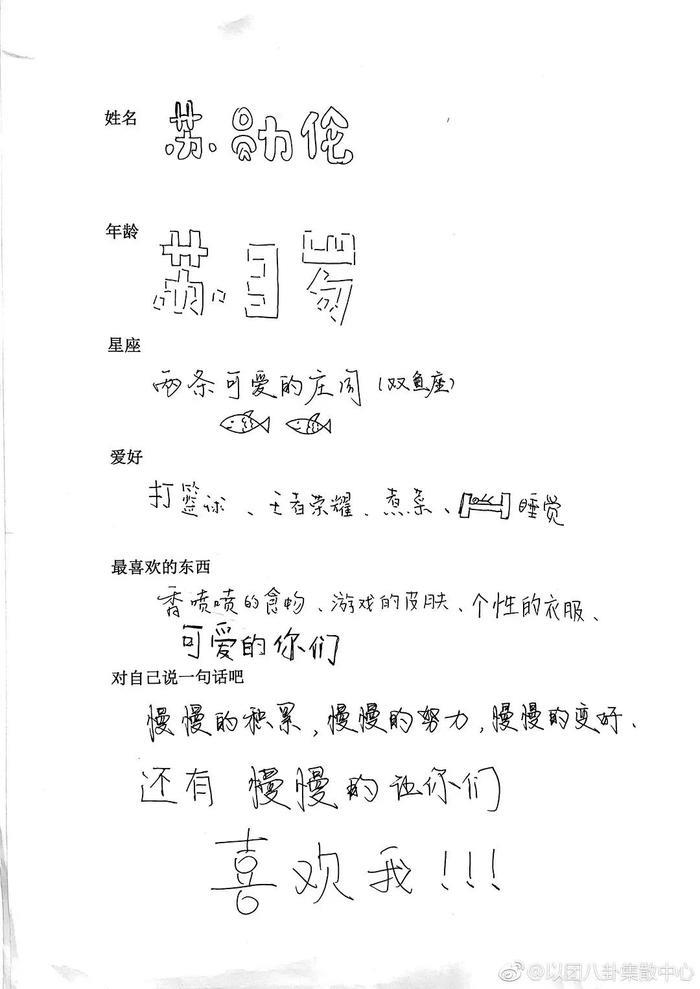 姓名 苏勋伦
年龄
星座
两条可爱的庄周（双鱼座）
爱好
打篮球、王者荣耀、煮菜、睡觉
最喜欢的东西
香喷喷的食物、游戏的皮肤、个性的衣服、
可爱的你们
对自己说一句话吧
慢慢的积累，慢慢的努力，慢慢的变好、
还有 慢慢的让你们
喜欢我!!!
@以团八卦集散中心